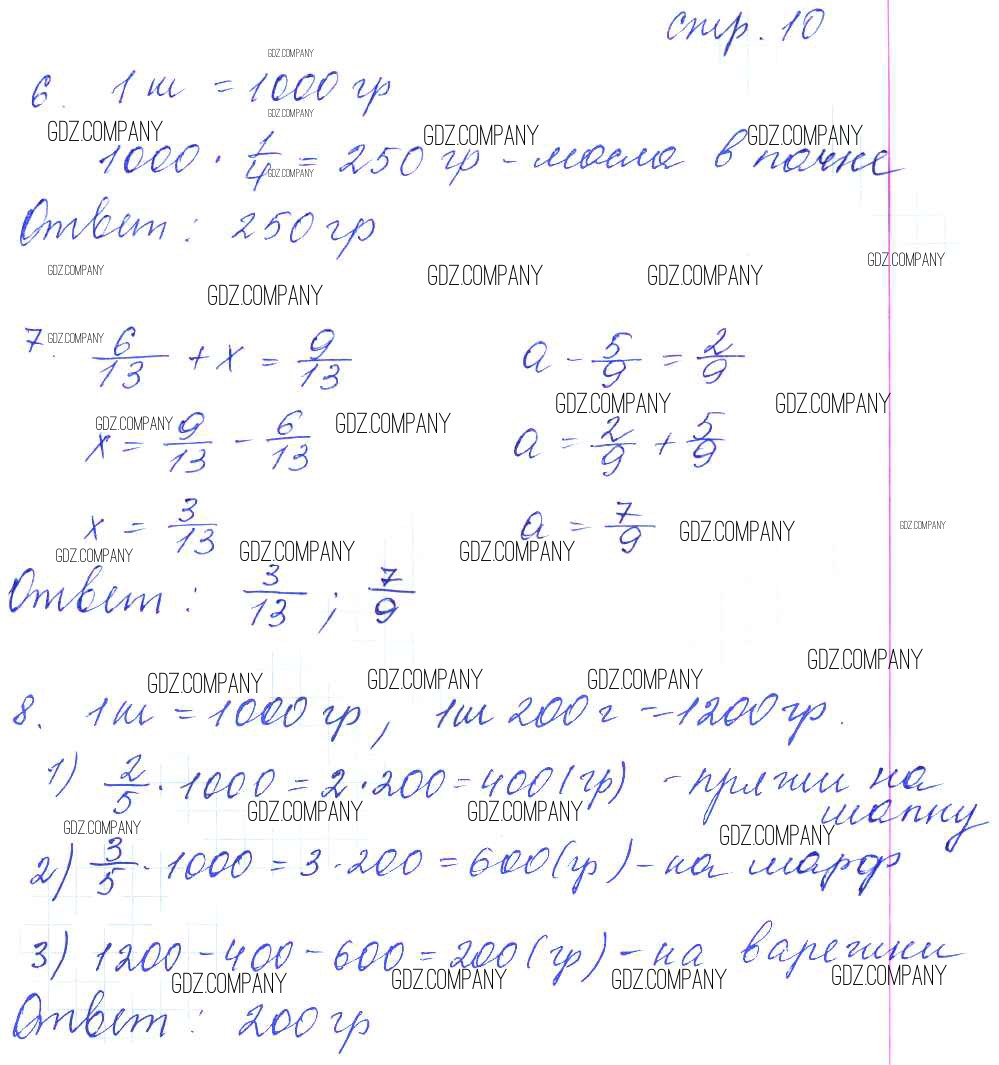 стр. 10
GDZ.COMPANY
6. 1 кг = 1000 гр
GDZ.COMPANY
GDZ.COMPANY GDZ.COMPANY GDZ.COMPANY
1000 · 1/4 = 250 гр - масла в пачке
GDZ.COMPANY
Ответ: 250 гр
GDZ.COMPANY
GDZ.COMPANY GDZ.COMPANY GDZ.COMPANY
GDZ.COMPANY
7. 6/13 + x = 9/13 a - 5/9 = 2/9
GDZ.COMPANY
GDZ.COMPANY GDZ.COMPANY
GDZ.COMPANY GDZ.COMPANY
x = 9/13 - 6/13 a = 2/9 + 5/9
x = 3/13 a = 7/9
GDZ.COMPANY GDZ.COMPANY
GDZ.COMPANY GDZ.COMPANY GDZ.COMPANY
Ответ: 3/13 ; 7/9
GDZ.COMPANY
GDZ.COMPANY GDZ.COMPANY GDZ.COMPANY
8. 1 кг = 1000 гр, 1 кг 200 г = 1200 гр.
1) 2/5 · 1000 = 2 · 200 = 400 (гр) - пряжи на
шапку
GDZ.COMPANY GDZ.COMPANY
GDZ.COMPANY GDZ.COMPANY
2) 3/5 · 1000 = 3 · 200 = 600 (гр) - на шарф
3) 1200 - 400 - 600 = 200 (гр) - на варежки
GDZ.COMPANY GDZ.COMPANY GDZ.COMPANY GDZ.COMPANY
Ответ: 200 гр